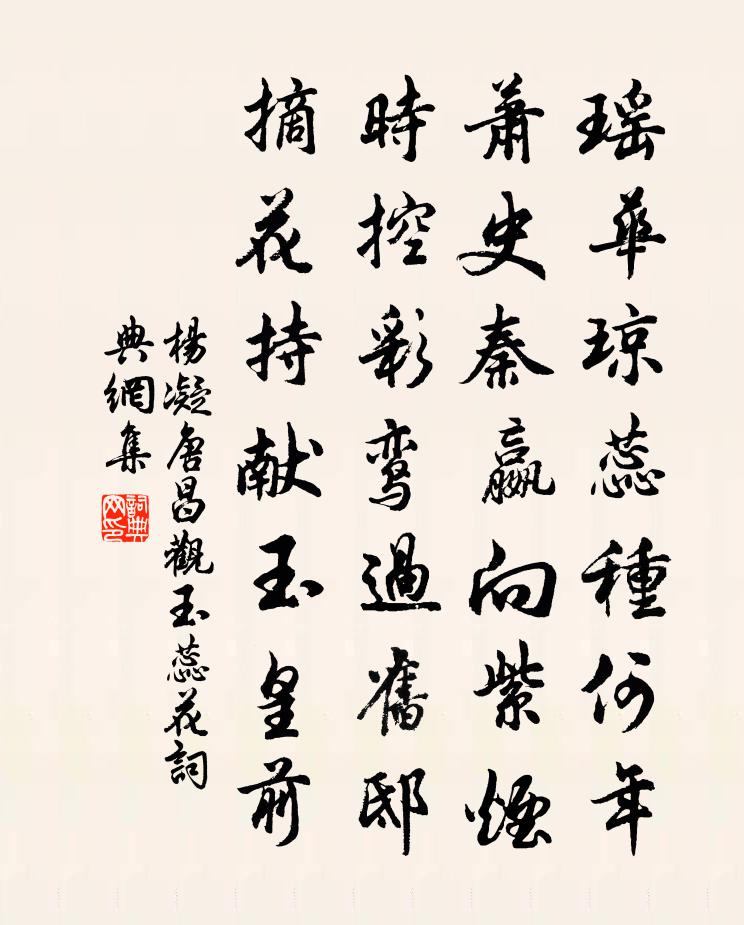 瑶華琼蕊種何年
萧史秦嬴向紫煙
時控彩鸾過舊邸
摘花持献玉皇前
楊凝唐昌觀玉蕊花詞
典網集
詞典網印